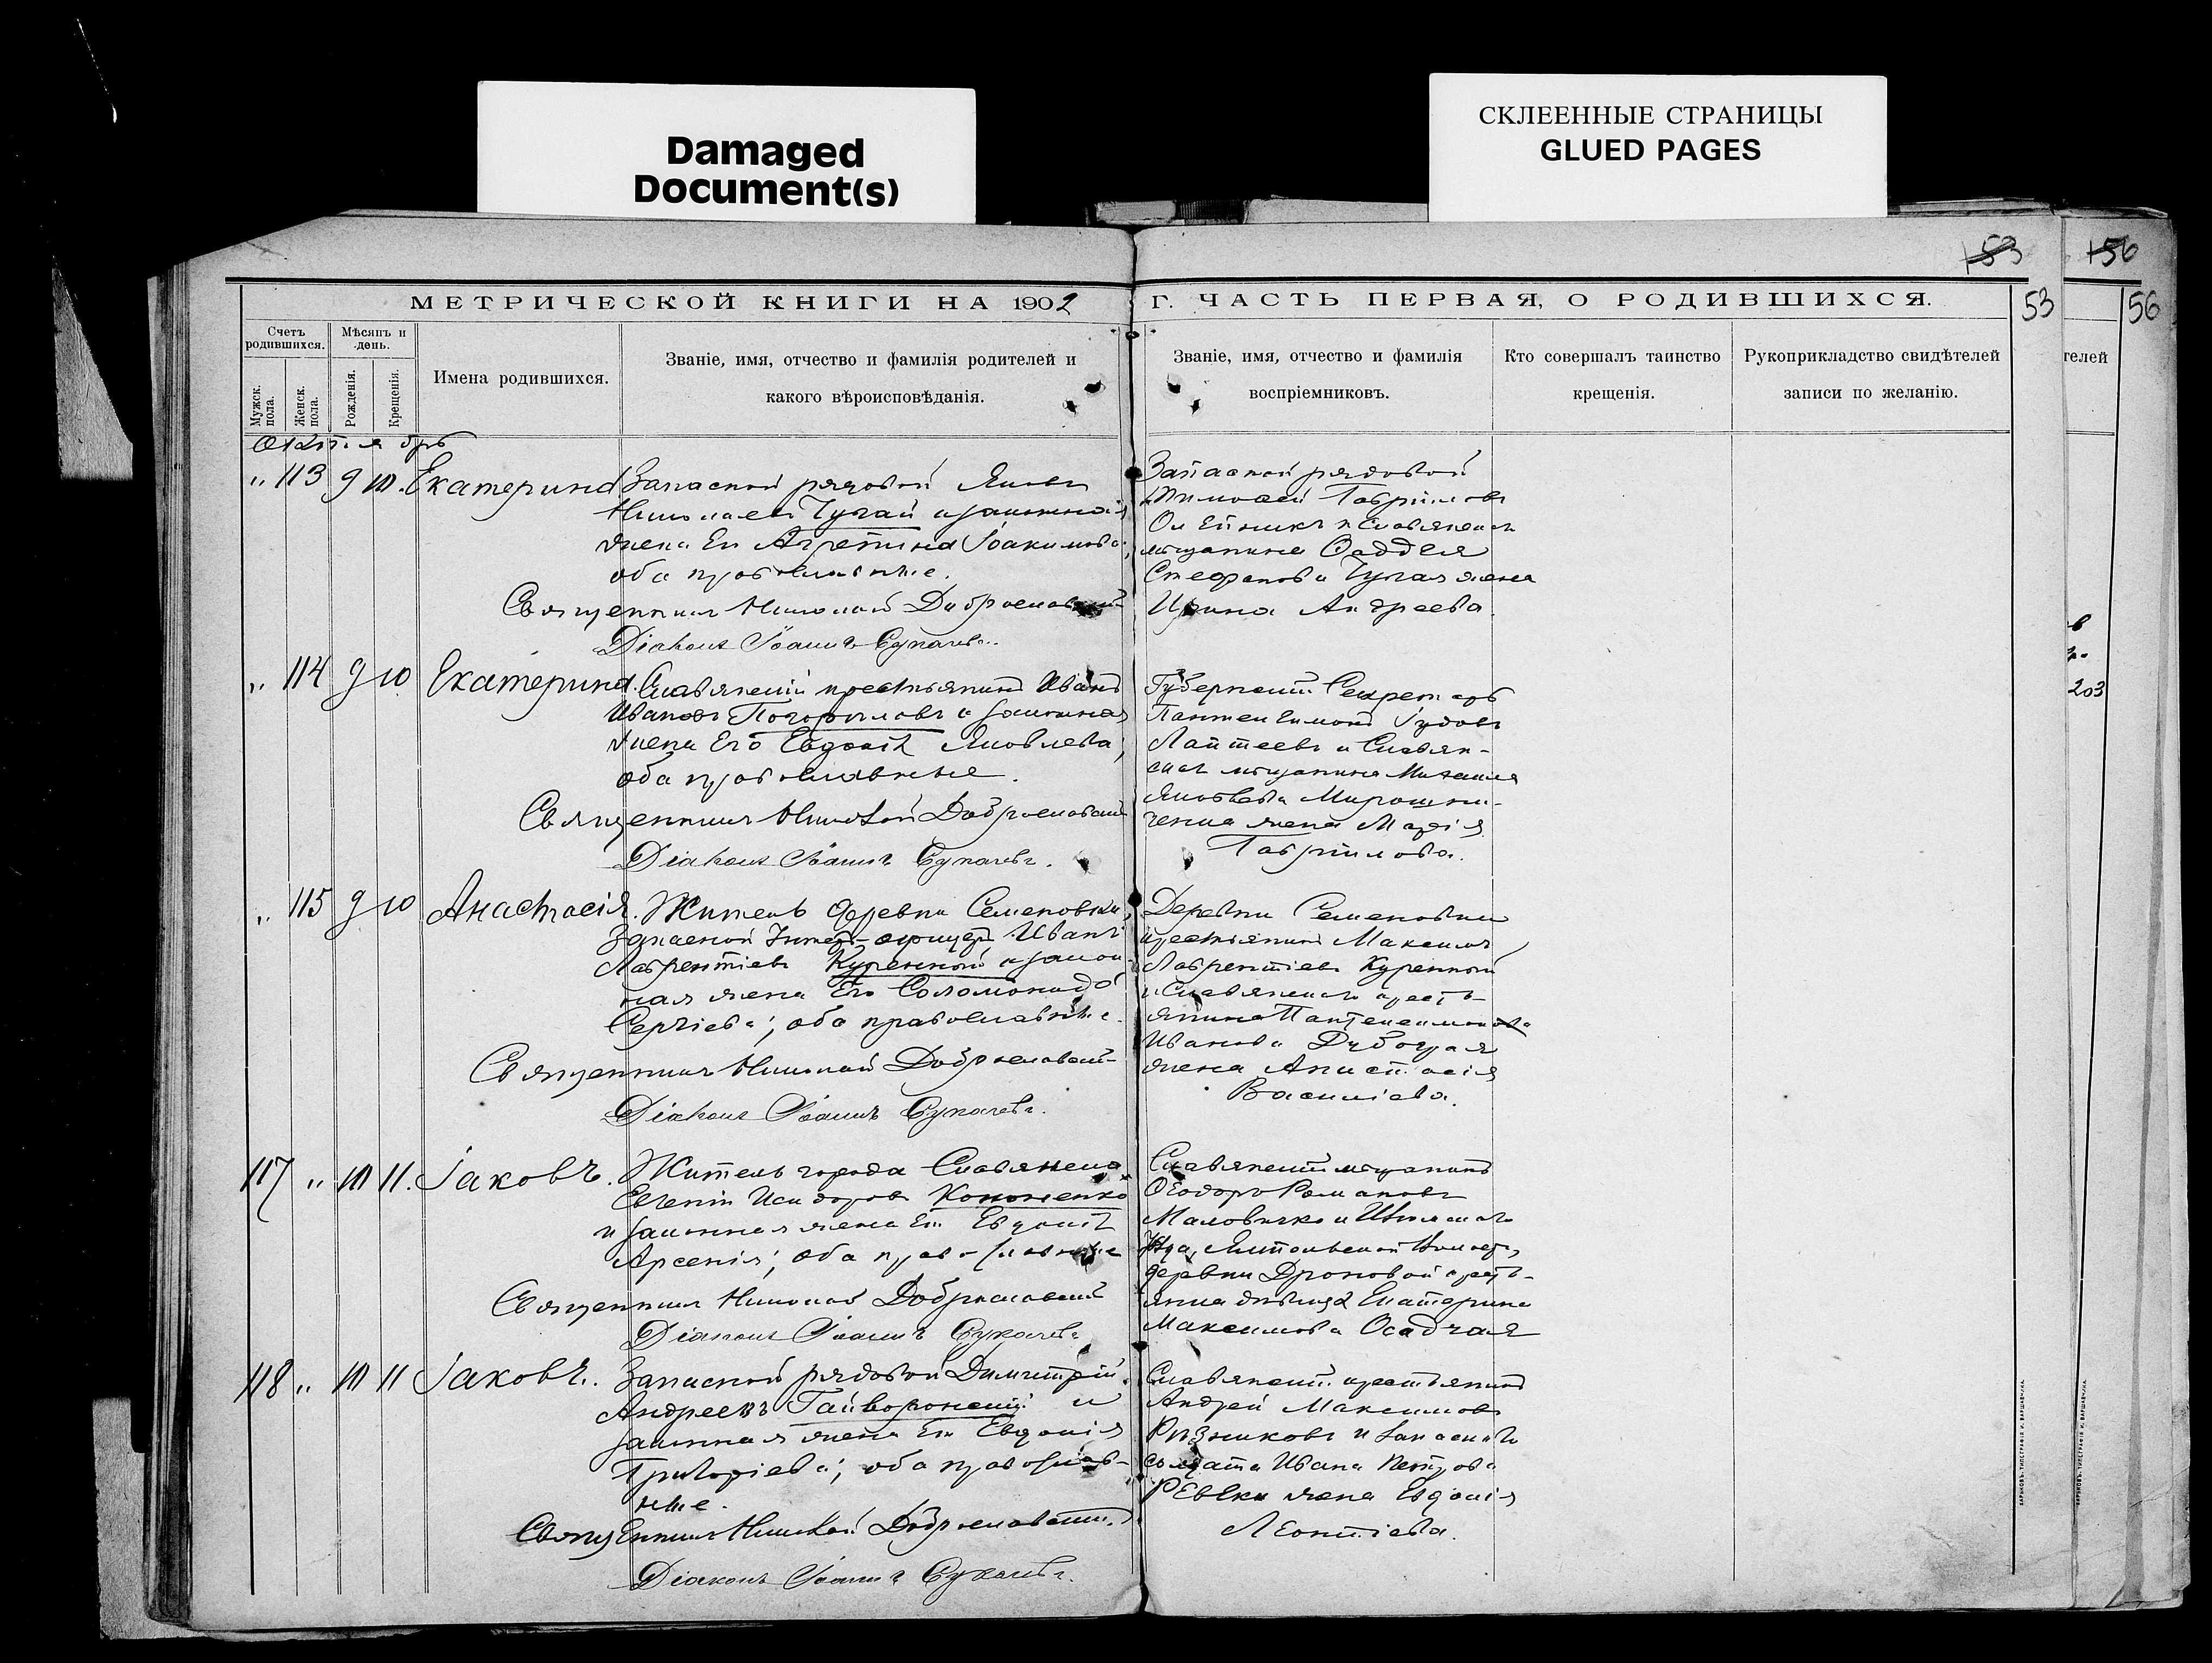 Damaged
Document(s)
СКЛЕЕННЫЕ СТРАНИЦЫ
GLUED PAGES
153
156
МЕТРИЧЕСКОЙ КНИГИ НА 1902
Г. ЧАСТЬ ПЕРВАЯ, О РОДИВШИХСЯ.
53
56
Счетъ родившихся.
Мѣсяцъ и день.
Мужск. пола.
Женск. пола.
Рожденія.
Крещенія.
Имена родившихся.
Званіе, имя, отчество и фамилія родителей и
какого вѣроисповѣданія.
Званіе, имя, отчество и фамилія
воспріемниковъ.
Кто совершалъ таинство
крещенія.
Рукоприкладство свидѣтелей
записи по желанію.
телей
Октябрь
" 113 9 10. Екатерина Запасной рядовой Яковъ
Николаевъ Чугай и законная
жена Его Агрепина Іоакимова,
оба православные.
Священникъ Николай Доброславскій
Діаконъ Іоаннъ Сукачевъ.
Запасной рядовой
Тимоѳей Гавріиловъ
Олейникъ и Славянскаго
мѣщанина Ѳаддея
Стефанова Чугая жена
Ирина Андреева.
" 114 9 10 Екатерина. Славянскій крестьянинъ Иванъ
Ивановъ Погорѣловъ и законная
жена Его Евдокія Яковлева,
оба православные.
Священникъ Николай Доброславскій
Діаконъ Іоаннъ Сукачевъ.
Губернскій Секретарь
Пантелеимонъ
и Славян-
скаго мѣщанина Михаила
Яковлева Мирошни-
ченка жена Марія
Гавріилова.
" 115 9 10 Анастасія. Житель деревни Семеновки,
Запасной Унтеръ-офицеръ Иванъ
Лаврентіевъ Куренной и закон-
ная жена Его Соломонида
Сергіева; оба православные.
Священникъ Николай Доброславскій
Діаконъ Іоаннъ Сукачевъ.
Деревни Семеновки
крестьянинъ Максимъ
Лаврентіевъ Куренной
и Славянскаго кресть-
янина Пантелеимона
Иванова
жена Анастасія
Василіева.
117 " 10 11. Іаковъ. Житель города Славянска
Евгеній Исидоровъ Кононенко
и законная жена Его Евдокія
Арсенія; оба православные
Священникъ Николай Доброславскій
Діаконъ Іоаннъ Сукачевъ
Славянскій мѣщанинъ
Ѳеодоръ Романовъ
Маловичко и Изюмскаго
уѣзда,
деревни Дроновой кресть-
янка дѣвица Екатерина
Максимова Осадчая
118 " 10 11 Іаковъ. Запасной рядовой Димитрій
Андреевъ Гайворонскій и
законная жена Его Евдокія
Григоріева; оба православ-
ные.
Священникъ Николай Доброславскій
Діаконъ Іоаннъ Сукачевъ.
Славянскій крестьянинъ
Андрей Максимовъ
Рѣзниковъ и запаснаго
солдата Ивана Петрова
Ревки жена Евдокія
Леонтіева.
203
ХАРЬКОВЪ. ТИПОГРАФІЯ И. ВАРШАВЧИКА.
ХАРЬКОВЪ. ТИПОГРАФІЯ И. ВАРШАВЧИКА.